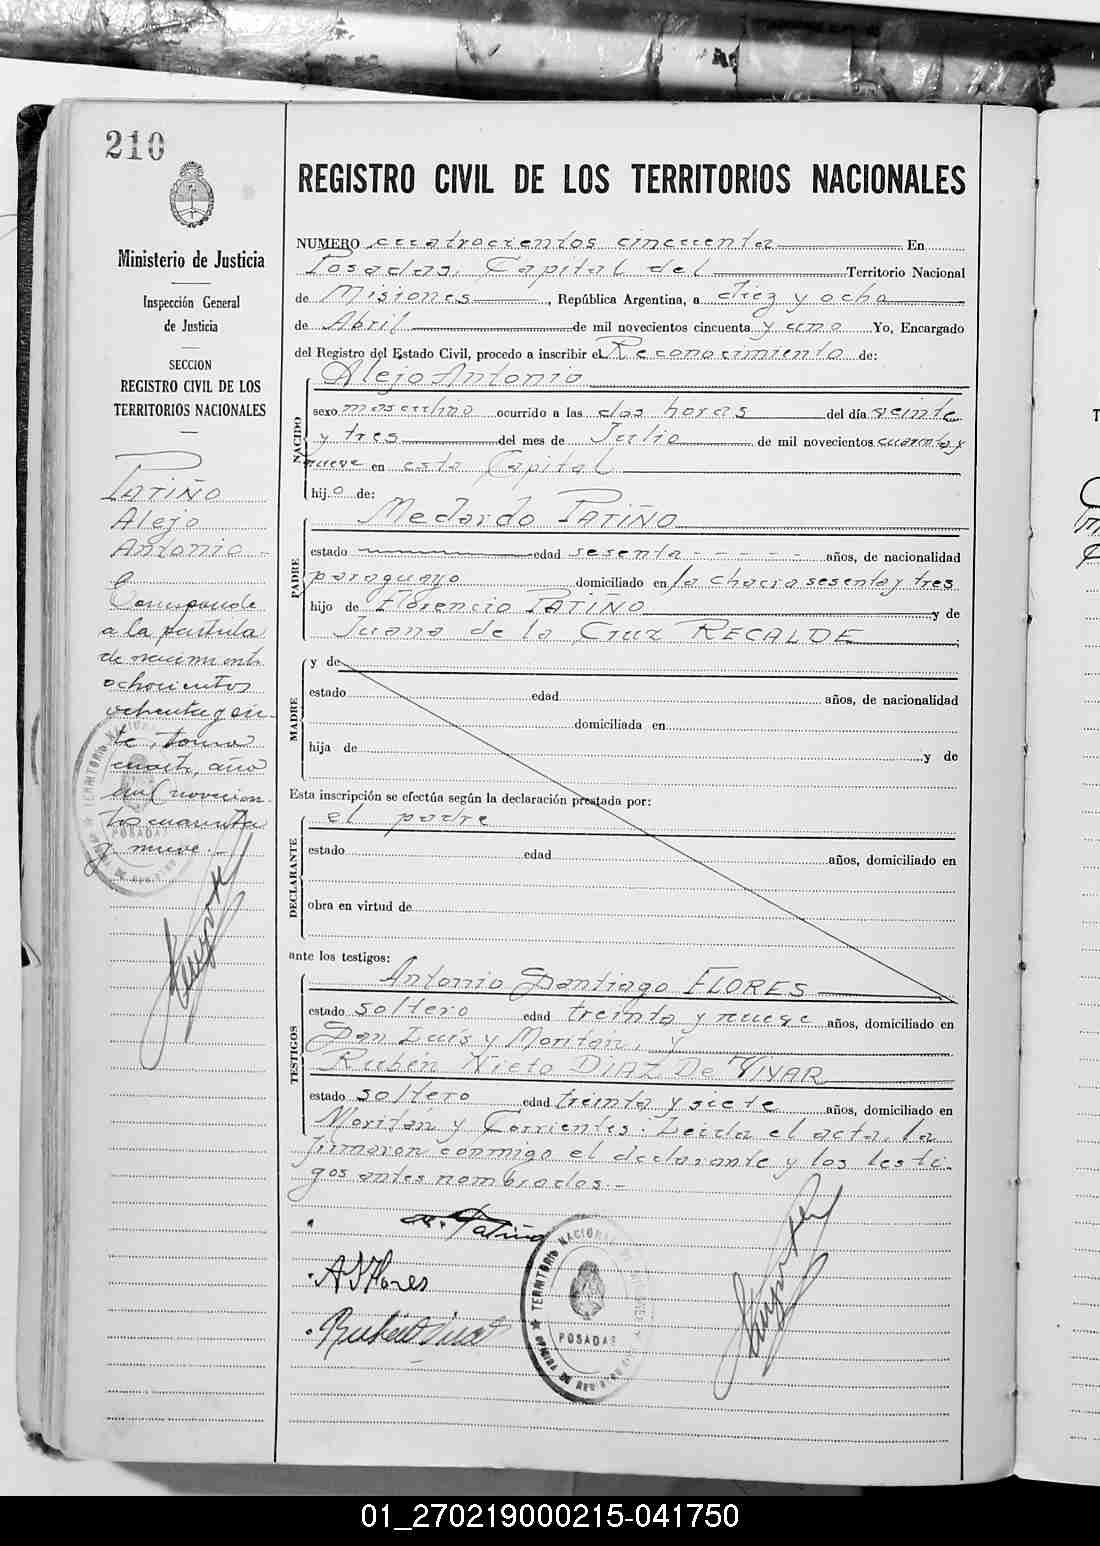 210
Ministerio de Justicia
Inspección General
de Justicia
SECCION
REGISTRO CIVIL DE LOS
TERRITORIOS NACIONALES
PATIÑO
Alejo
Antonio
Corresponde
a la partida
de nacimiento
ochocientos
ochenta y sie-
te, tomo
cuarto, año
mil novecien-
tos cuarenta
y nueve.-
REGISTRO CIVIL DE LOS TERRITORIOS NACIONALES
NUMERO cuatrocientos cincuenta En
Posadas, Capital del Territorio Nacional
de Misiones, República Argentina, a diez y ocho
de Abril de mil novecientos cincuenta y uno Yo, Encargado
del Registro del Estado Civil, procedo a inscribir el Reconocimiento de:
Alejo Antonio
NACIDO
sexo masculino ocurrido a las dos horas del día veinte
y tres del mes de Julio de mil novecientos cuarenta y
nueve en esta Capital
hijo de:
Medardo PATIÑO
PADRE
estado edad sesenta - - - - - años, de nacionalidad
paraguayo domiciliado en la chacra sesenta y tres
hijo de Florencio PATIÑO y de
Juana de la Cruz RECALDE
MADRE
y de
estado edad años, de nacionalidad
domiciliada en
hija de y de
Esta inscripción se efectúa según la declaración prestada por:
el padre
DECLARANTE
estado edad años, domiciliado en
obra en virtud de
ante los testigos:
Antonio Santiago FLORES
TESTIGOS
estado soltero edad treinta y nueve años, domiciliado en
San Luis y Moritán, y
Rubén Nieto DIAZ De VIVAR
estado soltero edad treinta y siete años, domiciliado en
Moritán y Corrientes. Leida el acta, la
firmaron conmigo el declarante y los testi-
gos antes nombrados.-
M. Patiño
A S Flores
TERRITORIO NACIONAL DE MISIONES
POSADAS
01_270219000215-041750